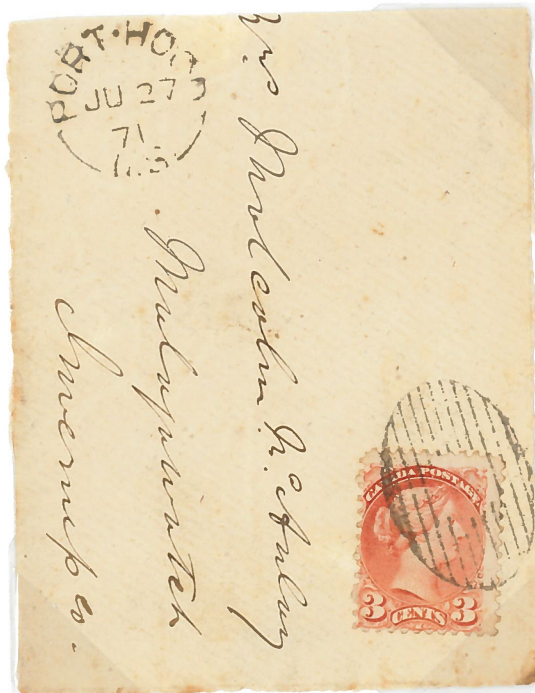 PORT·HOOD
JU 27
71
N.S
Mrs Malcolm McAulay
Malagawatch
Inverness Co.
CANADA POSTAGE
3 CENTS 3